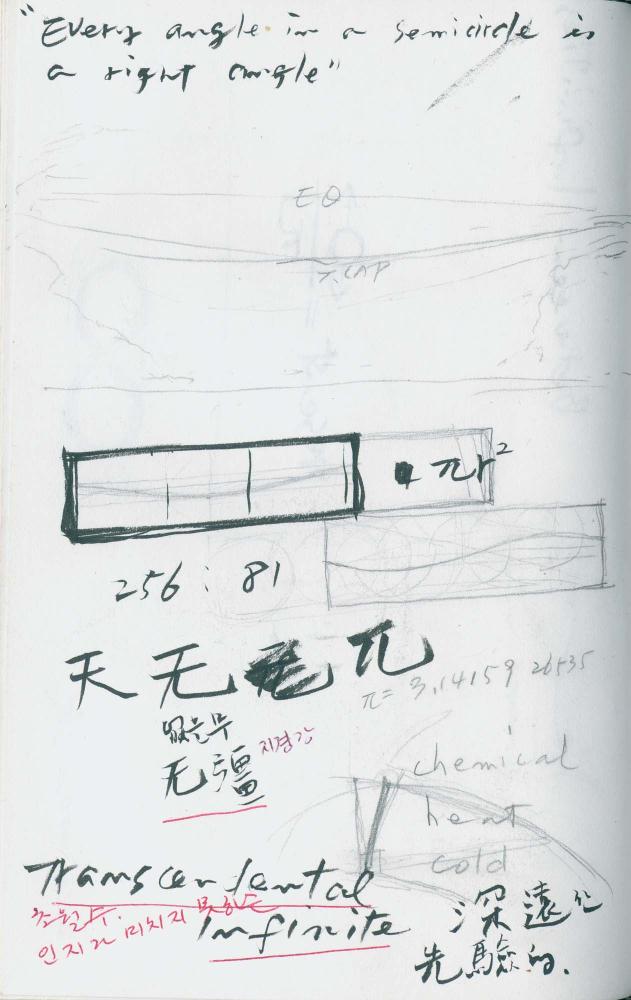 "Every angle in a semicircle is
a right angle"
EQ
T.CAP
πr²
256 : 81
天 无 π
π = 3.14159 26535
없을무
无疆 지경강
chemical
heat
cold
Transcendental
초월수.
인지가 미치지 못하는
Infinite
深遠한
先驗的.